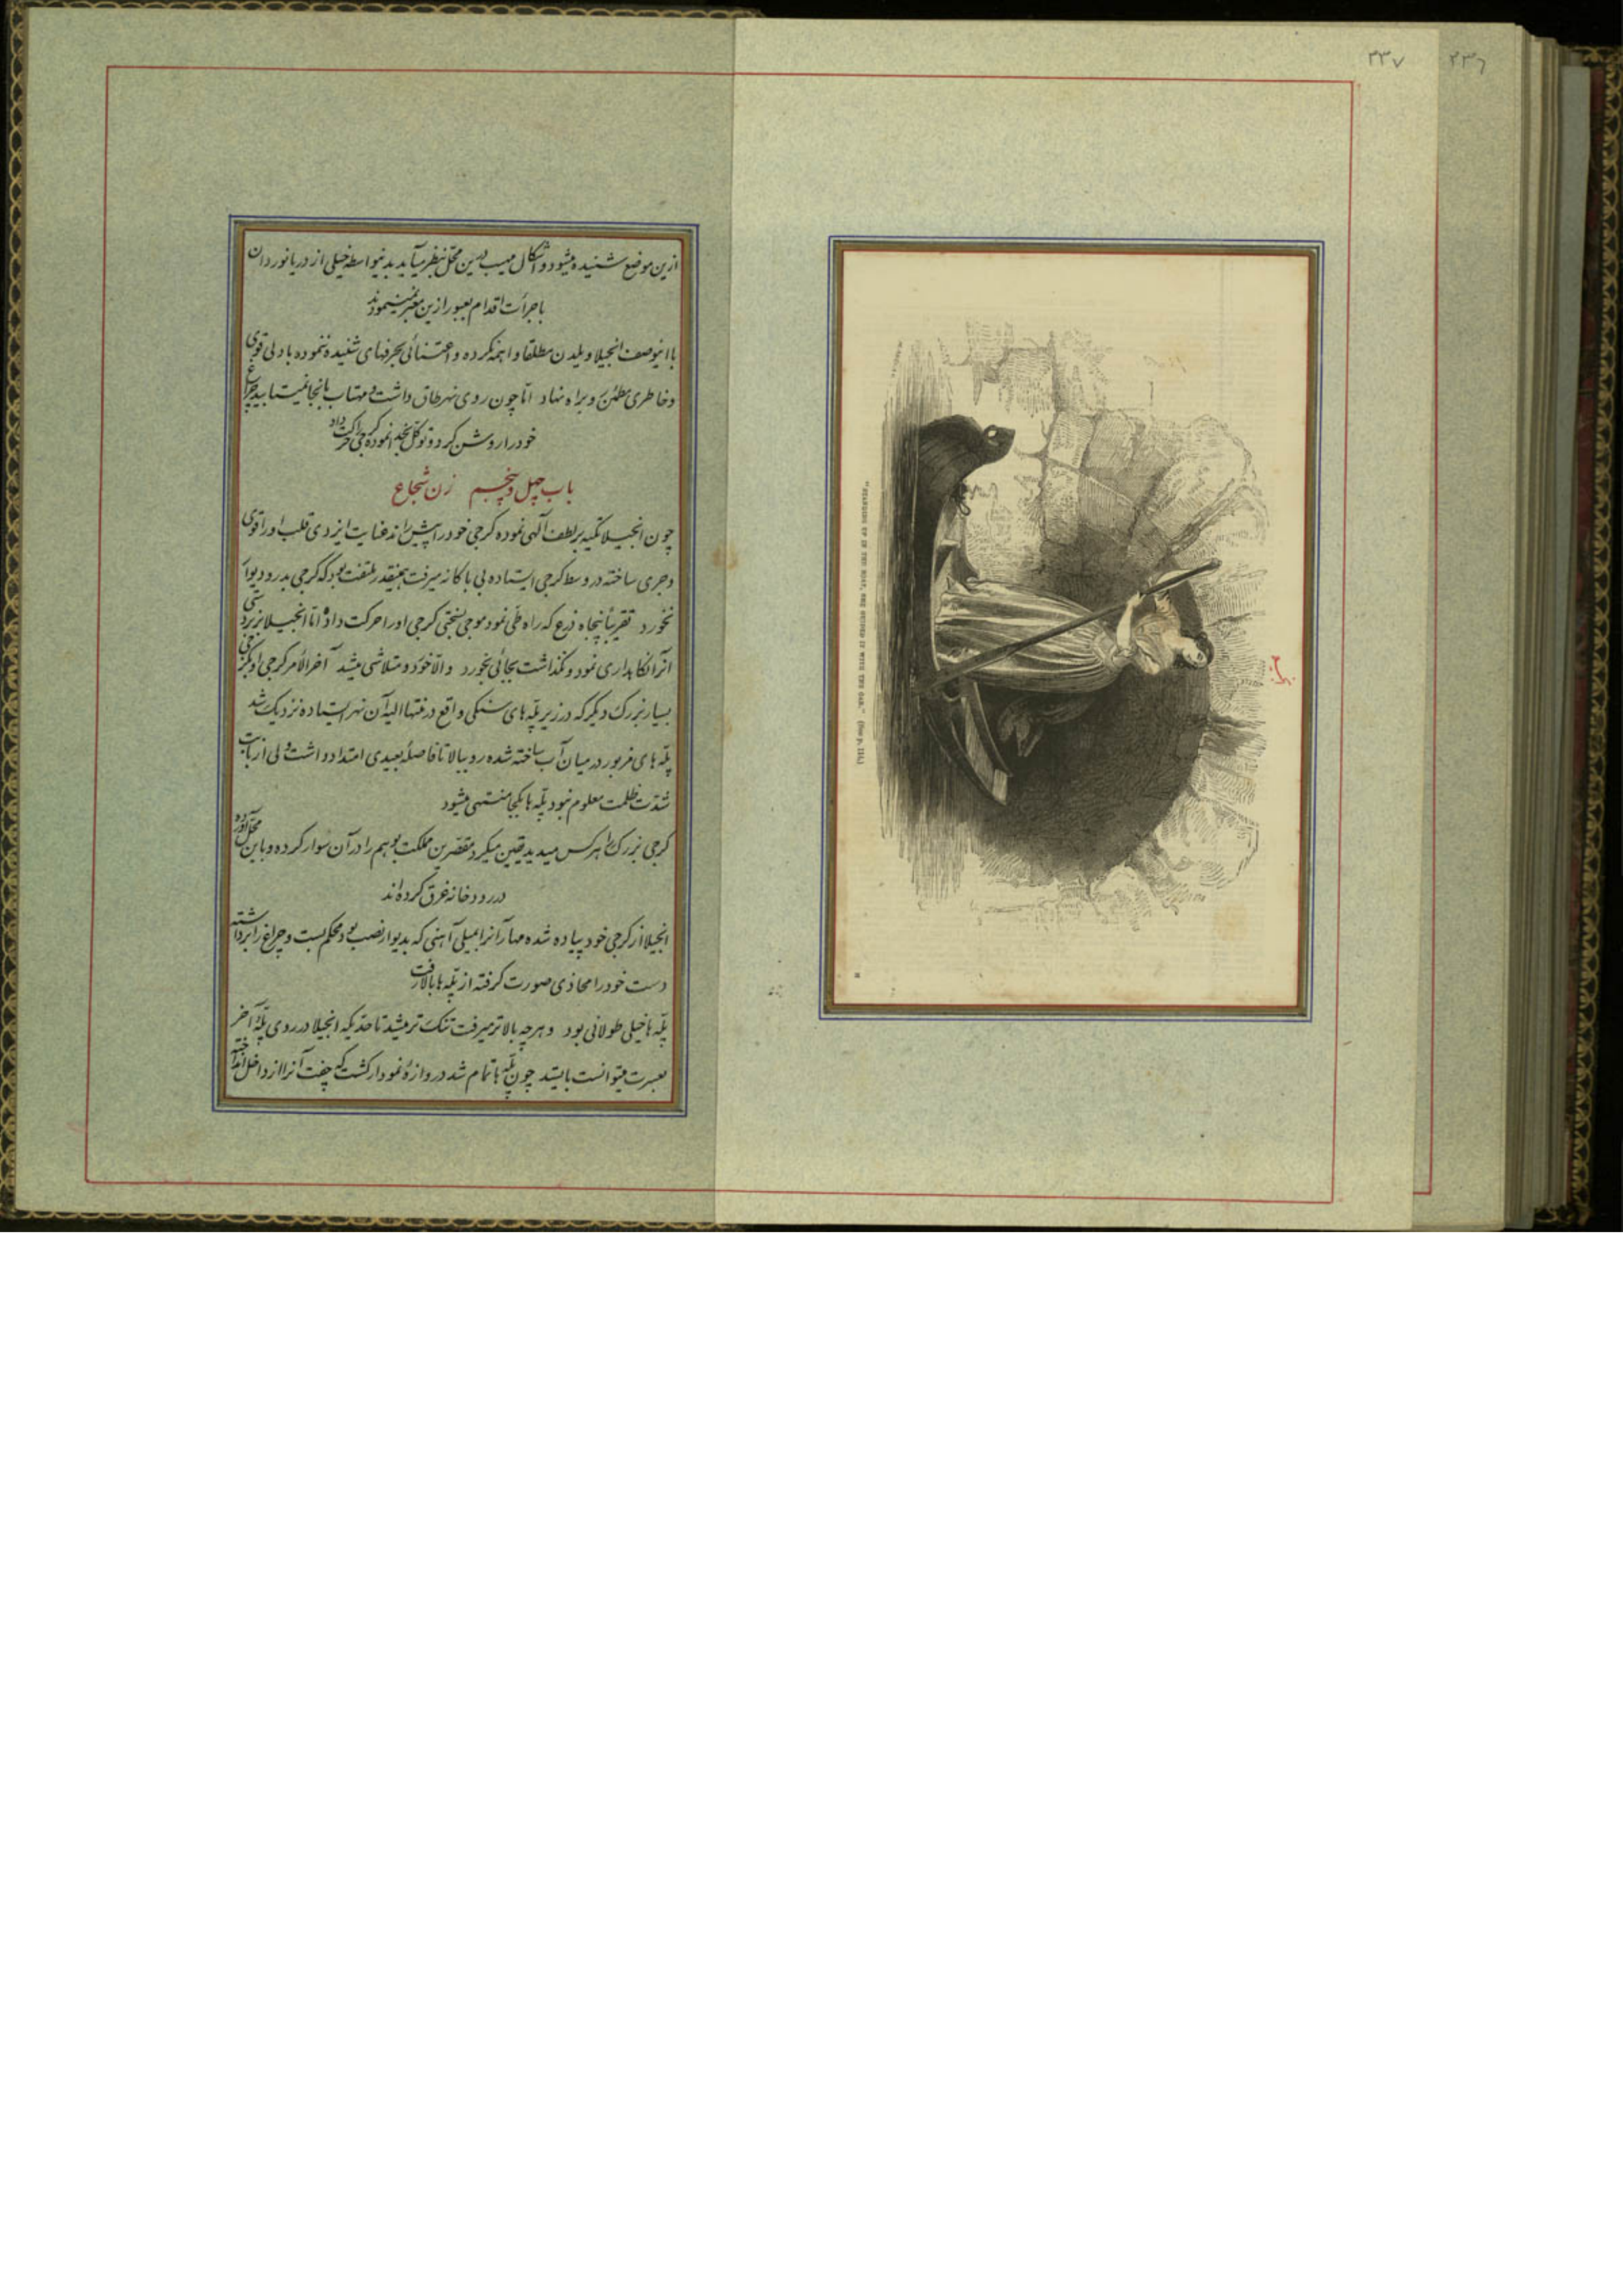 ۲۳۶
۲۳۷
"STANDING UP IN THE BOAT, SHE GUIDED IT WITH THE OAR." (See p. 114.)
ازین موضع شنیده میشود و اشکال مهیب درین محل بنظر میآید بدینواسطه خیلی از دریانوردان
با جرأت اقدام بعبور ازین معبر نمینمودند
با اینوصف انجیلا ویلدن مطلقا واهمه نکرده و اعتنائی بحرفهای شنیده ننموده با دلی قوی
و خاطری مطمئن رو براه نهاد اما چون روی نهر طاق داشت و مهتاب بانجا نمیتابید چراغ
خود را روشن کرد و توکل بخدا نموده کرجی را حرکت داد
باب چهل و پنجم زن شجاع
چون انجیلا تکیه بر لطف الهی نموده کرجی خود را پیش راند عنایت ایزدی قلب او را قوی
و جری ساخته در وسط کرجی ایستاده بی باکانه میرفت همینقدر ملتفت بود که کرجی بدر و دیوار
نخورد تقریباً پنجاه ذرع که راه طی نمود موجی بسختی کرجی او را حرکت داد اما انجیلا بزبردستی
آنرا نگاهداری نمود و نگذاشت بجائی بخورد والا خورد و متلاشی میشد آخر الامر کرجی او بکرجی
بسیار بزرگ دیگر که در زیر پله های سنگی واقع در منتها الیه آن نهر ایستاده نزدیک شد
پله های مزبور در میان آب ساخته شده رو ببالا تا فاصله بعیدی امتداد داشت ولی از بابت
شدت ظلمت معلوم نبود پله ها بکجا منتهی میشود
کرجی بزرگ را هر کس میدید یقین میکرد مقصرین مملکت بوهم را در آن سوار کرده و باین محل آورده
در رودخانه غرق کرده اند
انجیلا از کرجی خود پیاده شده مهار آنرا بمیلی آهنی که بدیوار نصب بود محکم بست و چراغ را برداشته
دست خود را محاذی صورت گرفته از پله ها بالا رفت
پله ها خیلی طولانی بود و هرچه بالاتر میرفت تنک تر میشد تا حدیکه انجیلا در روی پله آخر
بعسرت میتوانست بایستد چون پله ها تمام شد دروازه نمودار گشت که چفت آنرا از داخل انداخته